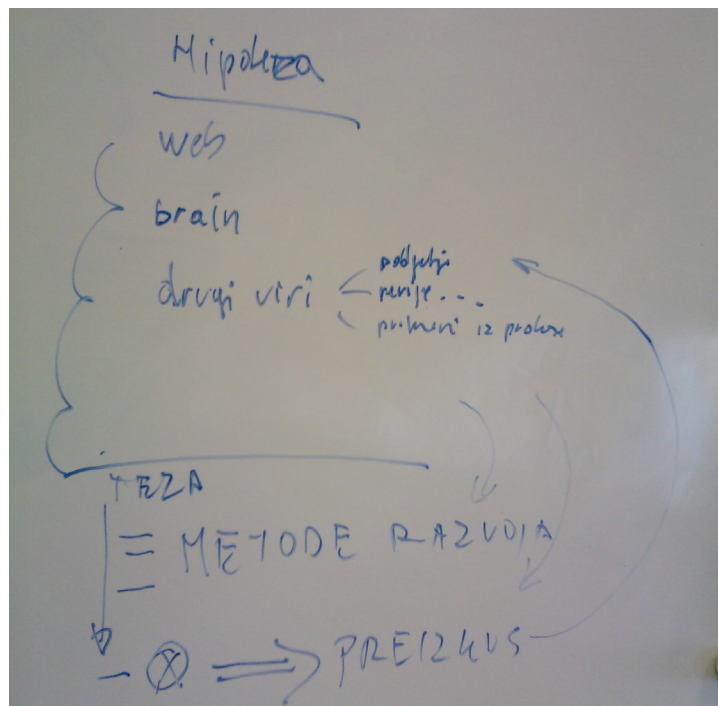 Hipoteza
web
brain
drugi viri
podjetji
revije...
primeri iz prakse
TEZA
METODE RAZVOJA
- X => PREIZKUS